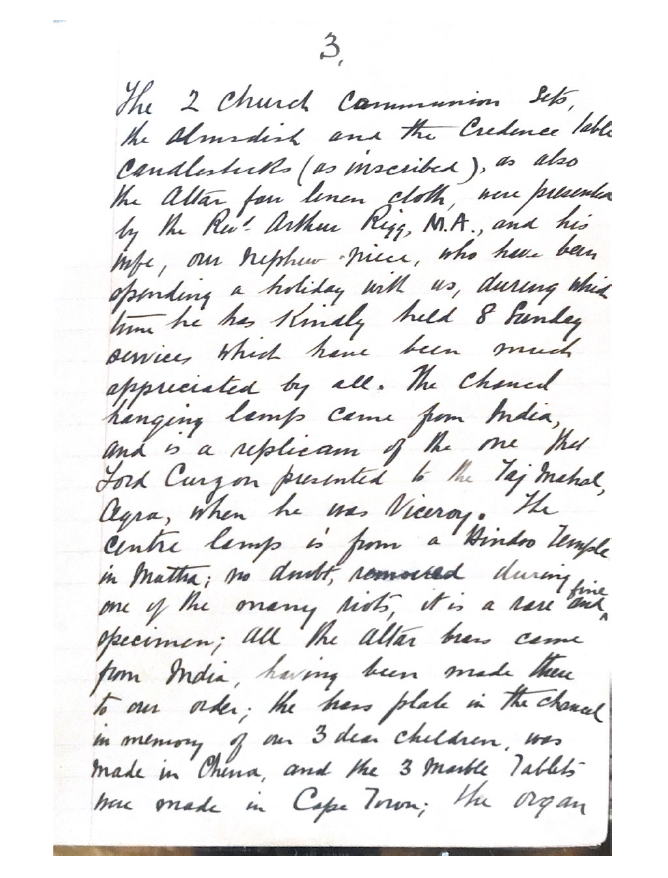 3.
The 2 Church Communion Sets,
the Almsdish and the Credence Table
Candlesticks (as inscribed), as also
the Altar fair linen cloth, were presented
by the Revd. Arthur Rigg, M.A., and his
wife, our nephew & niece, who have been
spending a holiday with us, during which
time he has kindly held 8 Sunday
services which have been much
appreciated by all. The Chancel
hanging lamp came from India,
and is a replicam of the one that
Lord Curzon presented to the Taj Mahal,
Agra, when he was Viceroy. The
centre lamp is from a Hindoo Temple
in Muttra; no doubt, removed during
one of the many riots, it is a rare and fine
specimen; all the Altar brass came
from India, having been made there
to our order; the brass plate in the chancel
in memory of our 3 dear children, was
made in China, and the 3 Marble Tablets
were made in Cape Town; the organ